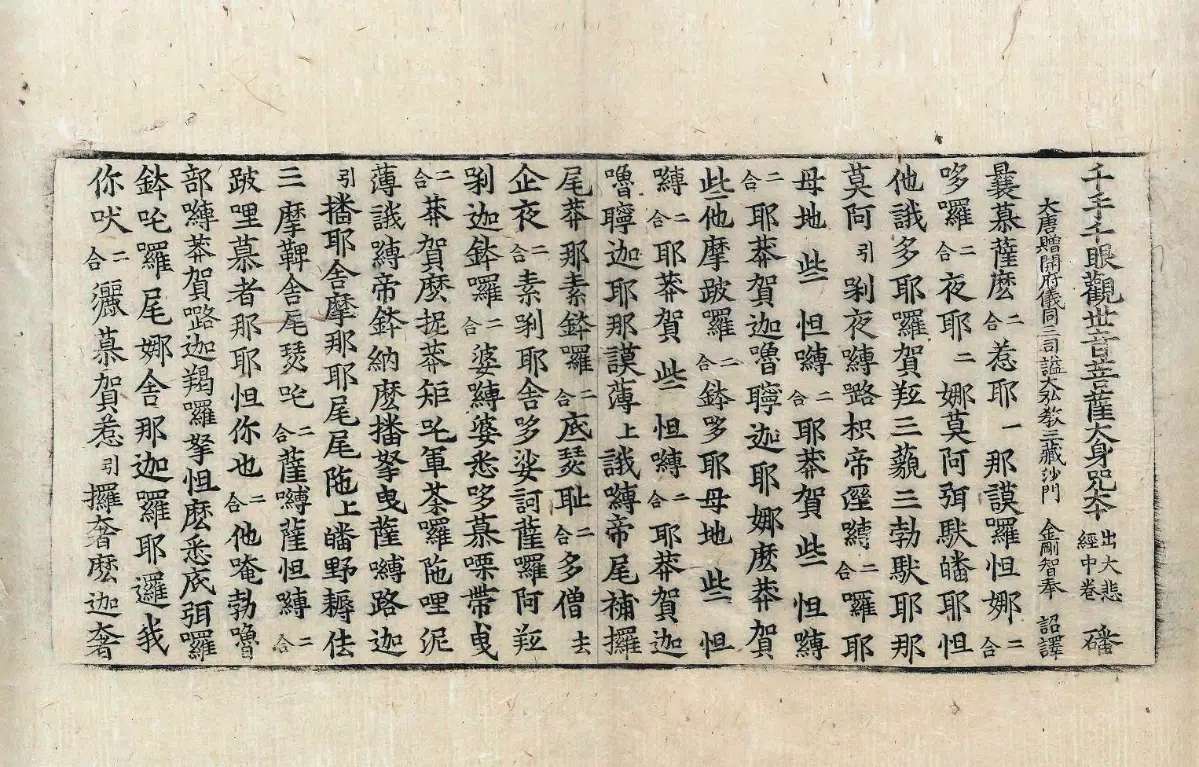 千手千眼觀世音菩薩大身咒本 出大悲經中卷 磻
大唐贈開府儀同三司謚大弘教三藏沙門 金剛智奉 詔譯
曩慕薩麽二合惹耶一那謨羅怛娜二合
哆囉二合夜耶二娜莫阿弭馱皤耶怛
他誐多耶囉賀羝三藐三勃馱耶那
莫阿引剎夜嚩路枳帝㘕嚩二合囉耶
母地些怛嚩二合耶莽賀些怛嚩
二合耶莽賀迦嚕聹迦耶娜麽莽賀
些他摩跛囉二合鉢哆耶母地些怛
嚩二合耶莽賀些怛嚩二合耶莽賀迦
嚕聹迦耶那謨薄上誐嚩帝尾補攞
尾莽那素鉢囉二合底瑟耻二合多僧去
企夜二合素剎耶舍哆娑訶薩囉阿羝
剎迦鉢囉二合婆嚩婆悉哆慕㗚帶曳
二合莽賀麽捉莽矩吒軍荼囉陁哩泥
薄誐嚩帝鉢納麽播拏曳薩嚩路迦
引播耶舍摩那耶尾尾陁上皤野耨佉
三摩鞞舍尾瑟吒二合薩嚩薩怛嚩二合
跛哩慕者那耶怛你也二合他唵勃嚕
部嚩莽賀路迦羯囉拏怛麽悉底弭囉
鉢吒囉尾娜舍那迦囉耶邏我
你吠二合灑慕賀惹引攞奢麽迦奢